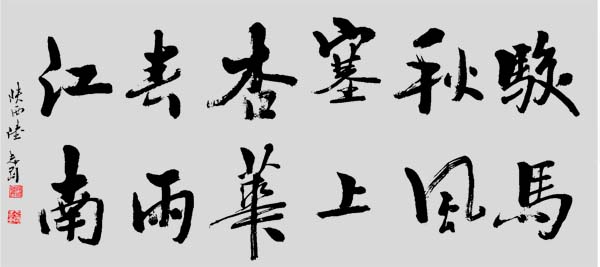 駿馬
秋風
塞上
杏華
春雨
江南
陕西陸